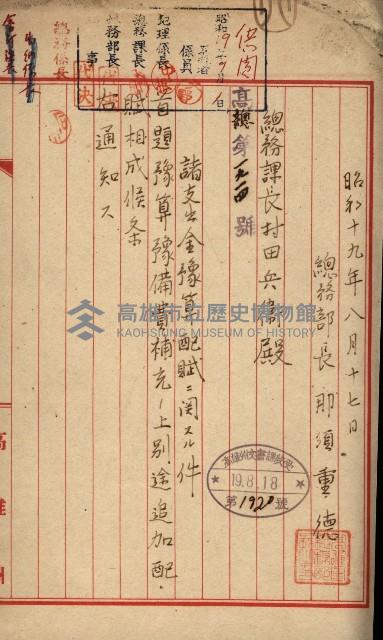 昭和十九年八月十七日
總務部長 那須重德
總務課長村田兵衞殿
高總第一九一四號
諸支出金豫算配賦ニ関スル件
首題豫算豫備費補充ノ上別途追加配
賦相成候条
右通知ス
供閱
昭和19年 月 日
係員
經理係長
總務課長
總務部長
總務係長
高雄州文書課收受
19.8.18
第1920號
高雄州
高雄市立歷史博物館
KAOHSIUNG MUSEUM OF HISTORY